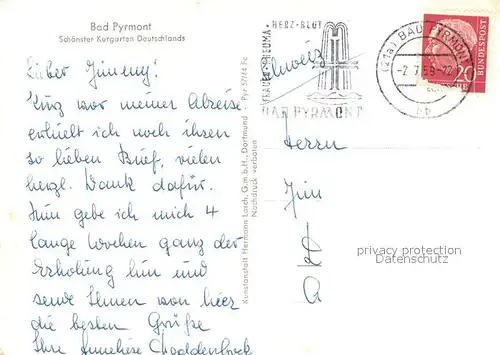 Bad Pyrmont
Schönster Kurgarten Deutschlands
Lieber Jimmy!
Kurz vor meiner Abreise
erhielt ich noch ihren
so lieben Brief, vielen
herzl. Dank dafür.
Nun gebe ich mich 4
lange Wochen ganz der
Erholung hin und
sende Ihnen von hier
die besten Grüße
Ihre Anneliese
Kunstanstalt Hermann Lorch, G.m.b.H., Dortmund Pyr 57/44 Fc
Nachdruck verboten
FRAUEN·RHEUMA·HERZ·BLUT
BAD PYRMONT
Schweiz
(21a) BAD PYRMONT
DEUTSCHE BUNDESPOST
20
Herrn
Jim
privacy protection
Datenschutz